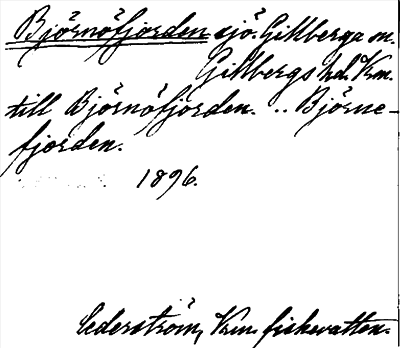 Björnöfjorden sjö. Gillberga sn.
Gillbergs hd. Krm.
till Björnöfjorden. .. Björne-
fjorden.
1896.
Cederström, Krm. fiskevatten.